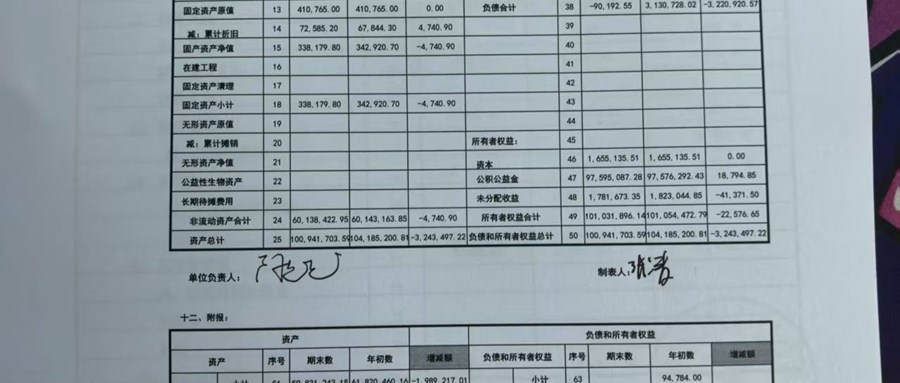 固定资产原值 13 410,765.00 410,765.00 0.00 负债合计 38 -90,192.55 3,130,728.02 -3,220,920.57
减：累计折旧 14 72,585.20 67,844.30 4,740.90 39
固产资产净值 15 338,179.80 342,920.70 -4,740.90 40
在建工程 16 41
固定资产清理 17 42
固定资产小计 18 338,179.80 342,920.70 -4,740.90 43
无形资产原值 19 44
减：累计摊销 20 所有者权益： 45
无形资产净值 21 资本 46 1,655,135.51 1,655,135.51 0.00
公益性生物资产 22 公积公益金 47 97,595,087.28 97,576,292.43 18,794.85
长期待摊费用 23 未分配收益 48 1,781,673.35 1,823,044.85 -41,371.50
非流动资产合计 24 60,138,422.95 60,143,163.85 -4,740.90 所有者权益合计 49 101,031,896.14 101,054,472.79 -22,576.65
资产总计 25 100,941,703.59 104,185,200.81 -3,243,497.22 负债和所有者权益总计 50 100,941,703.59 104,185,200.81 -3,243,497.22
单位负责人： 制表人：
十二、附报：
资产 负债和所有者权益
资产 序号 期末数 年初数 增减额 负债和所有者权益 序号 期末数 年初数 增减额
小计 51 59,831,243.15 61,820,460.16 -1,989,217.01 小计 63 94,784.00